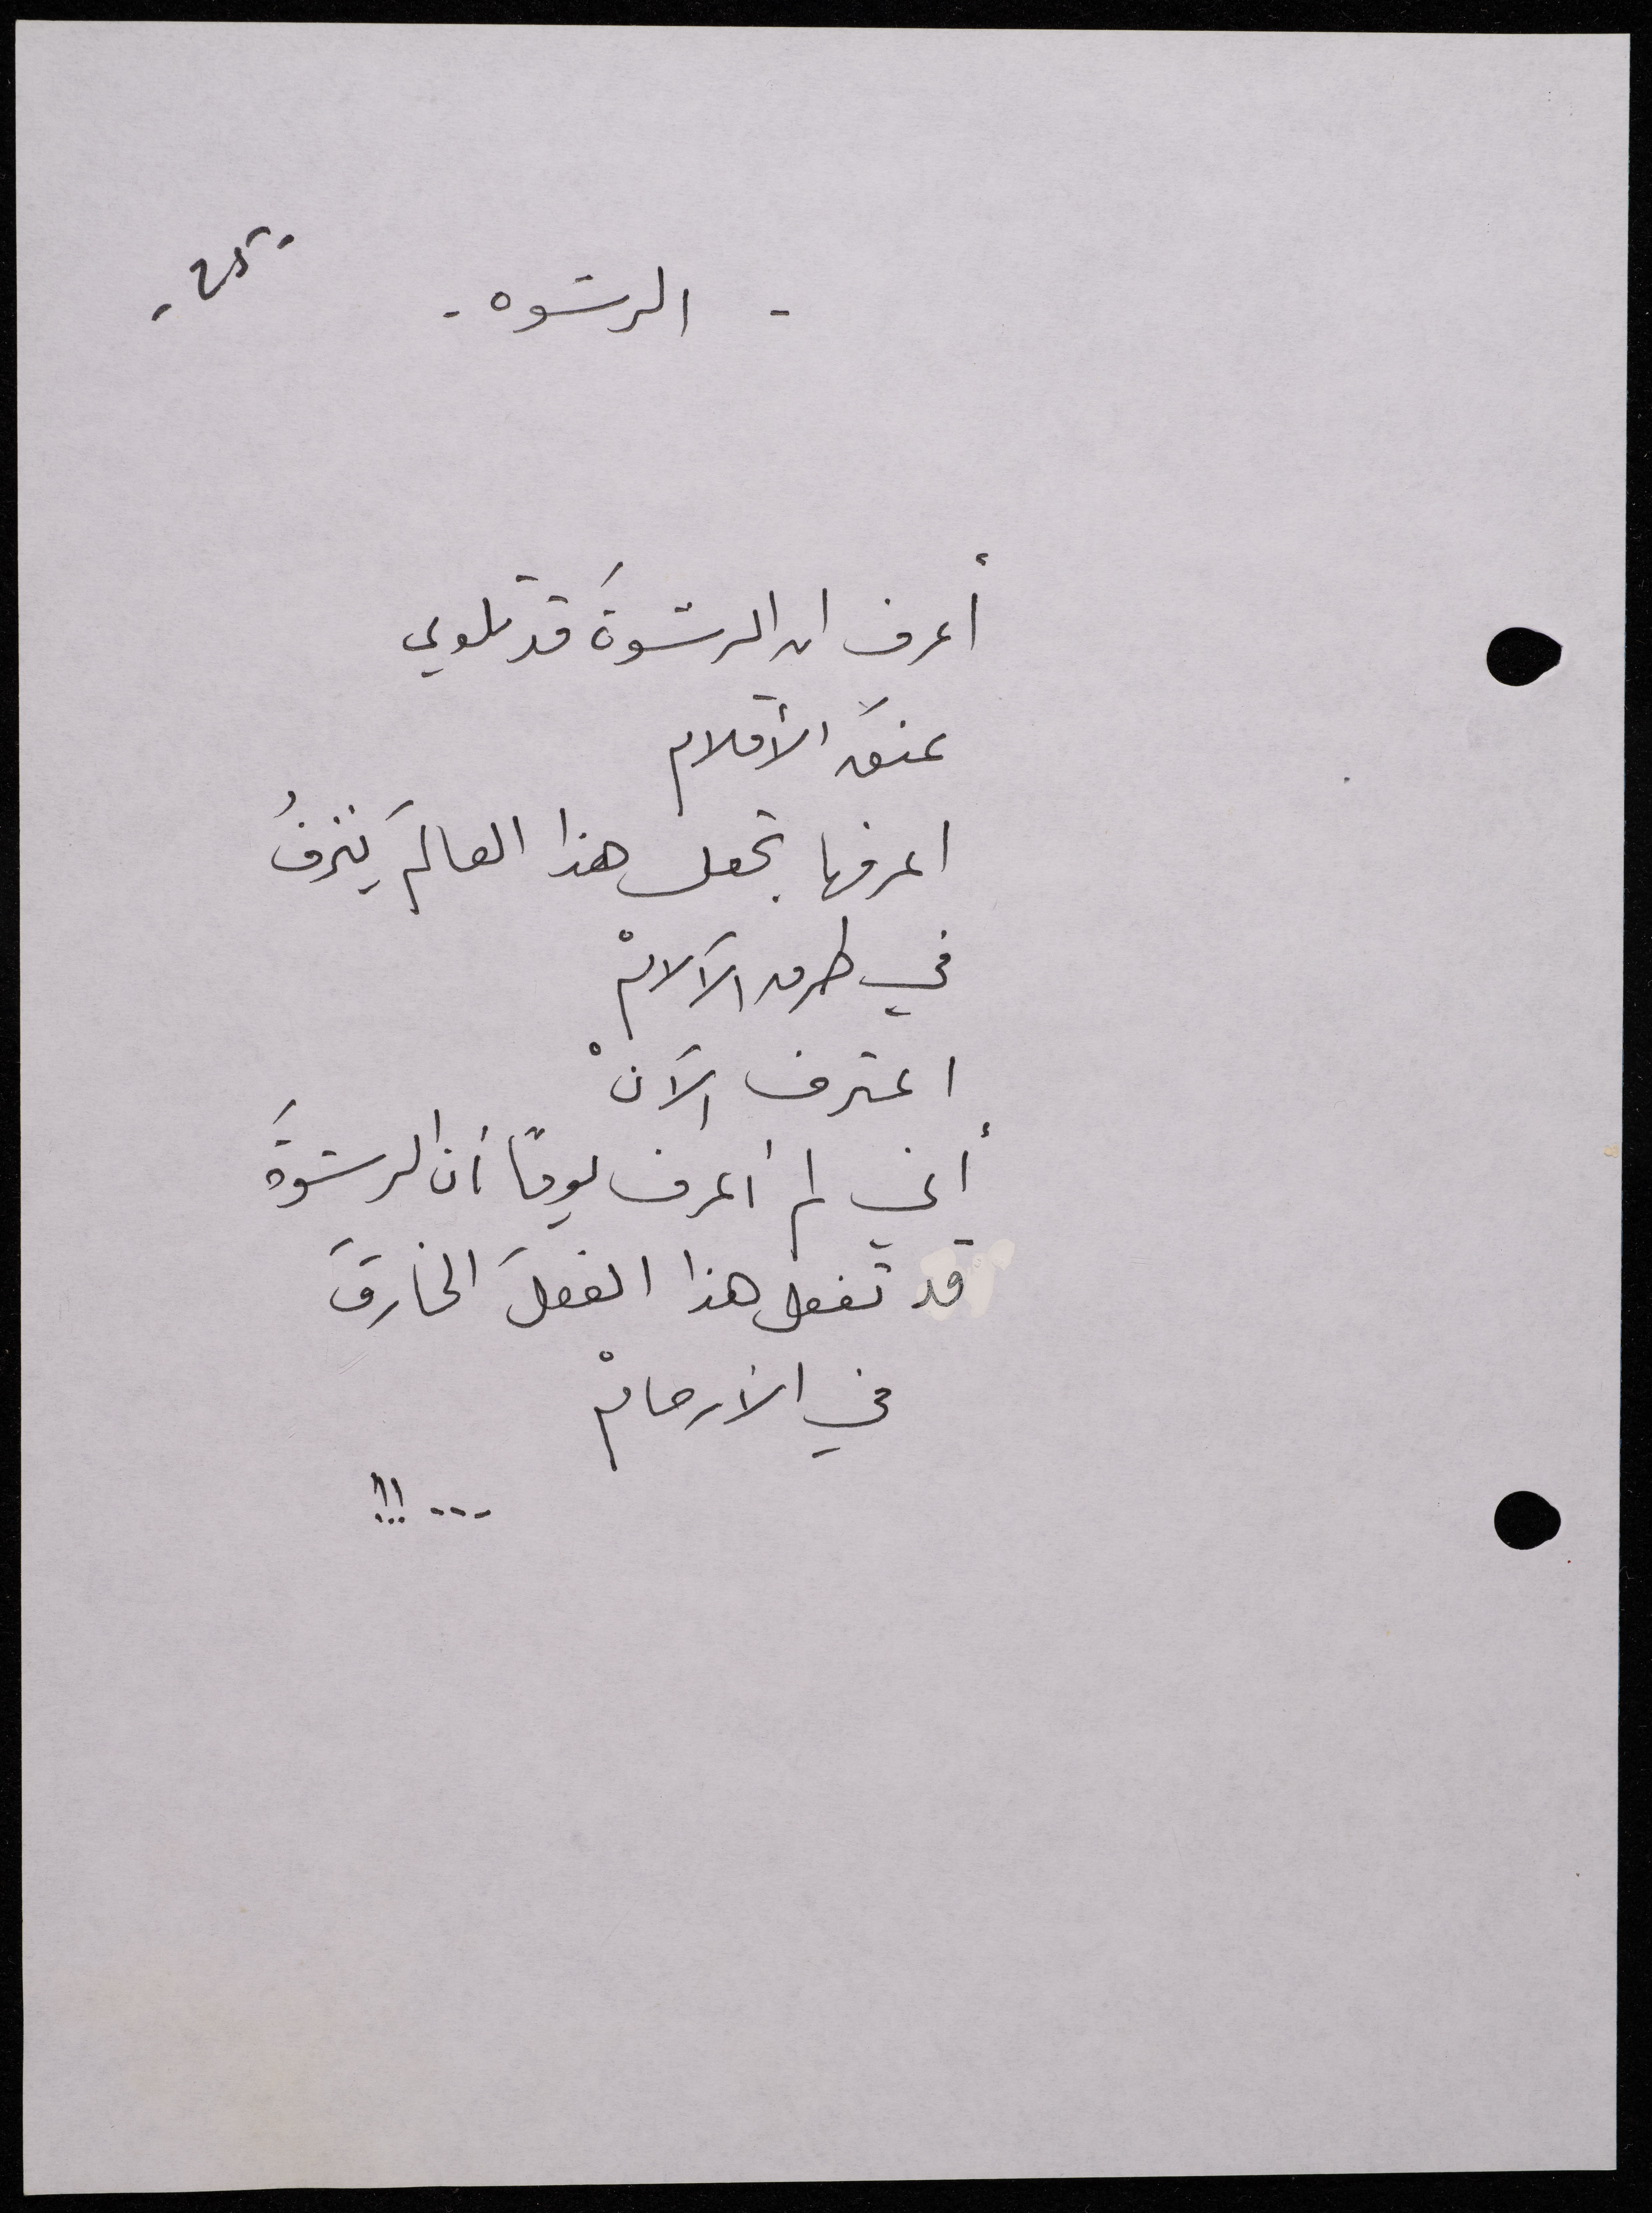 - الرشوه -
- 25 -
أعرف ان الرشوةَ قد تلوي
عنقَ الأقلام
اعرفها تجعل هذا العالمَ ينزفُ
في طرق الآلامْ
اعترف الآنْ
أني لم أعرف يوماً أن الرشوةَ
قد تفعل هذا الفعلَ الخارقَ
في الأرحامْ
... !!!